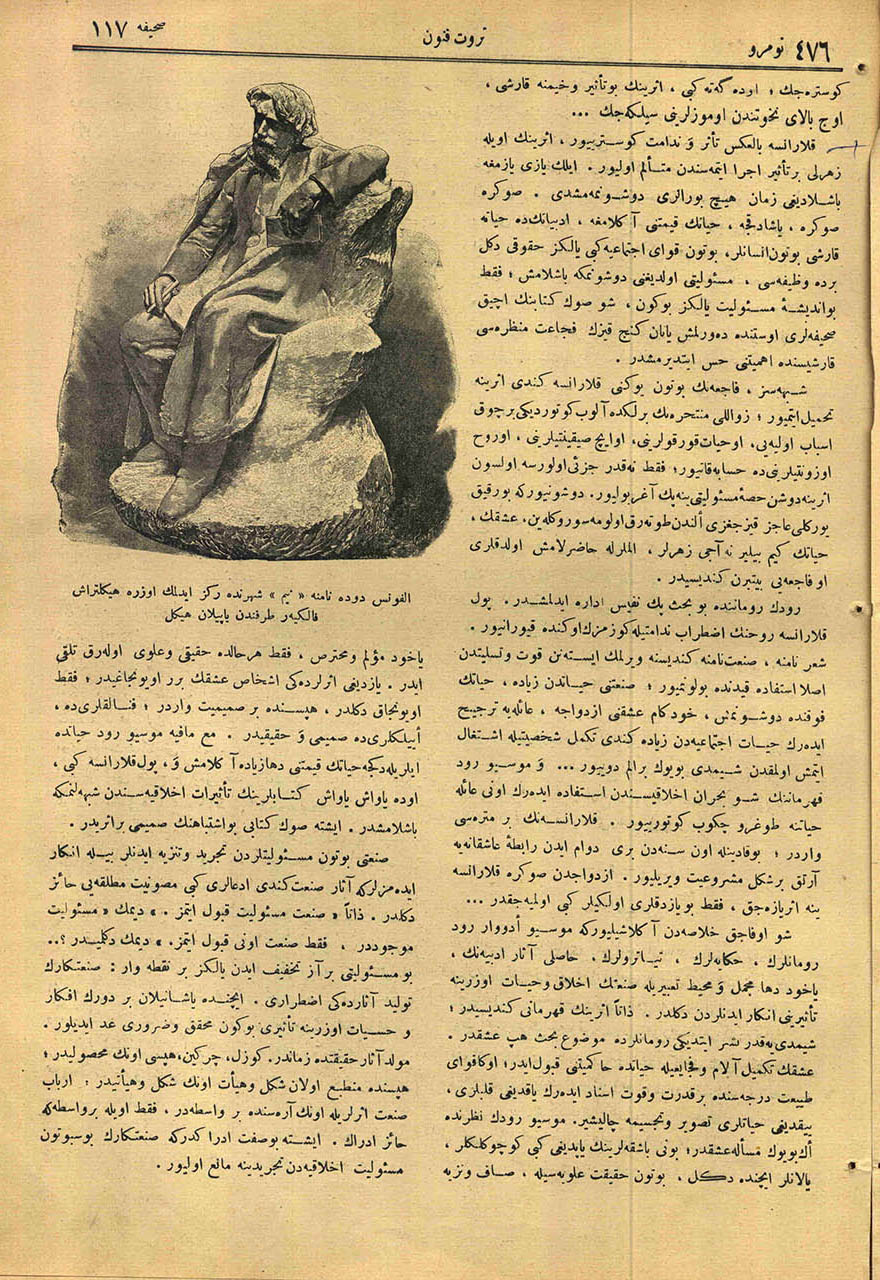 نومرو ٤٧٦
ثروت فنون
صحیفه ١١٧
كوستره‌جك ؛ اوده گه‌ته كبی ، اثرینك بو تأثیر وخیمنه قارشی ،
اوج بالای نخوتندن اوموزلرینی سیلكه‌جك ...
قلارانسه بالعكس تأثر وَ ندامت كوستریيور ، اثرینك اویله
زهرلی بر تأثیر اجرا ایتمه‌سندن متألم اولیور . ایلك یازی یازمغه
باشلادیغی زمان هیچ بورالری دوشونمه‌مشدی . صوكره
صوكره ، یاشادقجه ، حیاتك قیمتنی آكلامغه ، ادبیاتك‌ده حیاته
قارشی بوتون انسانلر، بوتون قوای اجتماعیه كبی یالكز حقوقی دكل
برده وظیفه‌سی ، مسئولیتی اولدیغنی دوشونمكه باشلامش ؛ فقط
بو اندیشهٔ مسئولیت یالكز بوكون ، شو صوك كتابنك آچیق
صحیفه‌لری اوستنده ده‌ورلمش یاتان كنج قیزك فجاعت منظره‌سی
قارشیسنده اهمیتنی حس ایتدیرمشدر .
شبهه‌سز ، فاجعه‌نك بوتون یوكنی قلارانسه كندی اثرینه
تحمیل ایتمیور ؛ زواللی منتحره‌نك برلكده آلوب كوتوردیكی بر چوق
اسباب اولیه‌یی، او حیات قورقولرینی، او ایچ صیقینتیلرینی ، او روح
اوزونتیلرینی‌ده حسابه قاتیور؛ فقط نه‌قدر جزئی اولورسه اولسون
اثرینه دوشن حصهٔ مسئولیتی ینه پك آغیر بولیور. دوشونیوركه بو رقیق
یوركلی عاجز قیزجغزی ألندن طوته‌رق اولومه سوروكله‌ین، عشقك ،
حیاتك كیم بیلیر نه آجی زهرلر ، الملرله حاضرلامش اولدقلری
او فاجعه‌یی بیتیرن كندیسیدر .
رودك روماننده بو بحث پك نفیس اداره ایدلمشدر. پول
قلارانسه روحنك اضطراب ندامتیله كوزمزك اوكنده قیورانیور .
شعر نامنه ، صنعت نامنه كندیسنه ویرلمك ایسته‌نن قوت وتسلیتدن
اصلا استفاده قیدنده بولونمیور ؛ صنعتنی حیاتدن زیاده ، حیاتك
فوقنده دوشونمش ، خودكام عشقنی ازدواجه ، عائله‌یه ترجیح
ایده‌رك حیات اجتماعیه‌دن زیاده كندی تكمل شخصیتیله اشتغال
ایتمش اولمقدن شیمدی بویوك بر الم دویيور ... وَ موسیو رود
قهرماننك شو بحران اخلاقیسندن استفاده ایده‌رك اونی عائله
حیاتنه طوغرو چكوب كوتوریيور . قلارانسه‌نك بر متره‌سی
واردر ؛ بو قادینله اون سنه‌دن بری دوام ایدن رابطهٔ عاشقانه‌یه
آرتق بر شكل مشروعیت ویریلیور . ازدواجدن صوكره قلارانسه
ینه اثر یازه‌جق ، فقط بو یازدقلری اولكیلر كبی اولمیه‌جقدر ...
شو اوفاجق خلاصه‌دن آكلاشیلیوركه موسیو أدووار رود
رومانلرك ، حكایه‌لرك ، تیاترولرك ، حاصلی آثار ادبیه‌نك ،
یاخود دها مجمل وَ محیط تعبیریله صنعتك اخلاق وحیات اوزرینه
تأثیرینی انكار ایدنلردن دكلدر . ذاتاً اثرینك قهرمانی كندیسیدر ؛
شیمدی‌یه‌قدر نشر ایتدیكی رومانلرده موضوع بحث هپ عشقدر .
عشقك تكمیل آلام وفجایعیله حیاتده حاكمیتنی قبول ایدر؛ اوكا قوای
طبیعت درجه‌سنده بر قدرت وقوت اسناد ایده‌رك یاقدیغی قلبلری ،
ییقدیغی حیاتلری تصویر وتجسیمه چالیشیر. موسیو رودك نظرنده
أك بویوك مسأله عشقدر؛ بونی باشقه‌لرینك یاپدیغی كبی كوچوكلكلر ،
یالانلر ایچنده دكل ، بوتون حقیقت علویه‌سیله ، صاف ونزیه
الفونس دوده نامنه « نیم » شهرنده ركز ایدلمك اوزره هیكلتراش
فالكیه‌ر طرفندن یاپیلان هیكل
یاخود مؤلم ومحترص ، فقط هرحالده حقیقی وعلوی اوله‌رق تلقی
ایدر. یازدیغی اثرلرده‌كی اشخاص عشقك برر اویونجاغیدر ؛ فقط
اویونجاق دكلدر ، هپسنده بر صمیمیت واردر ؛ فنالقلری‌ده ،
أییلكلری‌ده صمیمی وَ حقیقیدر . مع مافیه موسیو رود حیاتده
ایلریله‌دكجه حیاتك قیمتنی دها زیاده آكلامش وَ، پول قلارانسه كبی ،
اوده یاواش یاواش كتابلرینك تأثیرات اخلاقیه‌سندن شبهه‌لنمكه
باشلامشدر . ایشته صوك كتابی بو اشتباهنك صمیمی بر اثریدر .
صنعتی بوتون مسئولیتلردن تجرید وتنزیه ایدنلر بیله انكار
ایده‌مزلركه آثار صنعت كندی ادعالری كبی مصونیت مطلقه‌یی حائز
دكلدر . ذاتاً « صنعت مسئولیت قبول ایتمز . » دیمك « مسئولیت
موجوددر ، فقط صنعت اونی قبول ایتمز. » دیمك دكلمیدر ؟..
بو مسئولیتی بر آز تخفیف ایدن یالكز بر نقطه وار : صنعتكارك
تولید آثارده‌كی اضطراری . ایچنده یاشانیلان بر دورك افكار
و حسیات اوزرینه تأثیری بوكون محقق وضروری عد ایدیلور .
مولد آثار حقیقتده زماندر. كوزل، چركین، هپسی اونك محصولیدر ؛
هپسنده منطبع اولان شكل وهیأت اونك شكل وهیأتیدر : ارباب
صنعت اثرلریله اونك آره‌سنده بر واسطه‌در ، فقط اویله بر واسطه‌كه
حائز ادراك . ایشته بو صفت ادراكدركه صنعتكارك بوسبوتون
مسئولیت اخلاقیه‌دن تجریدینه مانع اولیور .